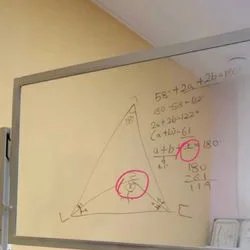 58+2a+2b=180
180-58=122
2a+2b=122
(a+b)=61
a+b+x=180
180
-61
119
58
L
E